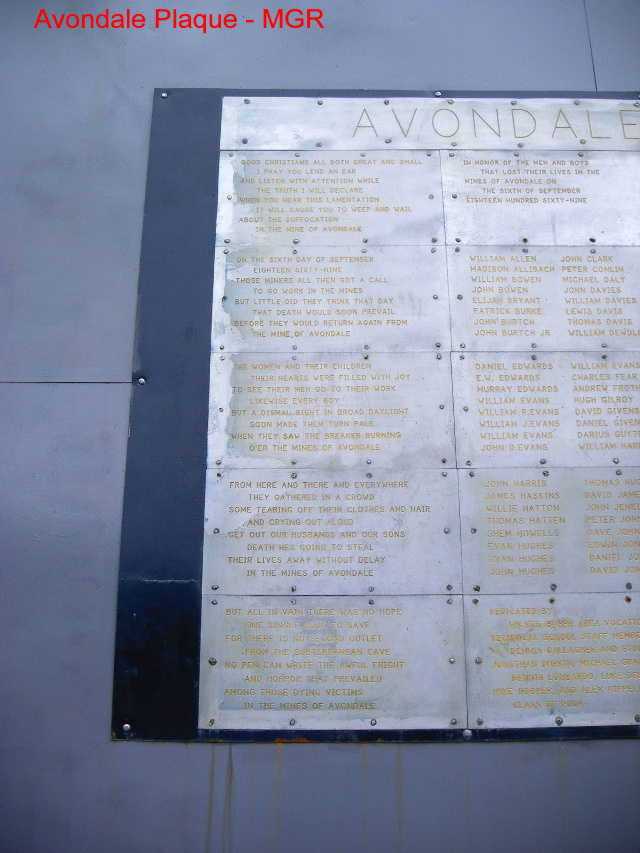 Avondale Plaque - MGR
AVONDALE
GOOD CHRISTIANS ALL BOTH GREAT AND SMALL
I PRAY YOU LEND AN EAR
AND LISTEN WITH ATTENTION WHILE
THE TRUTH I WILL DECLARE
WHEN YOU HEAR THIS LAMENTATION
IT WILL CAUSE YOU TO WEEP AND WAIL
ABOUT THE SUFFOCATION
IN THE MINE OF AVONDALE
ON THE SIXTH DAY OF SEPTEMBER
EIGHTEEN SIXTY-NINE
THOSE MINERS ALL THEN GOT A CALL
TO GO WORK IN THE MINES
BUT LITTLE DID THEY THINK THAT DAY
THAT DEATH WOULD SOON PREVAIL
BEFORE THEY WOULD RETURN AGAIN FROM
THE MINE OF AVONDALE
THE WOMEN AND THEIR CHILDREN
THEIR HEARTS WERE FILLED WITH JOY
TO SEE THEIR MEN GO TO THEIR WORK
LIKEWISE EVERY BOY
BUT A DISMAL SIGHT IN BROAD DAYLIGHT
SOON MADE THEM TURN PALE
WHEN THEY SAW THE BREAKER BURNING
O'ER THE MINES OF AVONDALE
FROM HERE AND THERE AND EVERYWHERE
THEY GATHERED IN A CROWD
SOME TEARING OFF THEIR CLOTHES AND HAIR
AND CRYING OUT ALOUD
GET OUT OUR HUSBANDS AND OUR SONS
DEATH HES GOING TO STEAL
THEIR LIVES AWAY WITHOUT DELAY
IN THE MINES OF AVONDALE
BUT ALL IN VAIN THERE WAS NO HOPE
ONE SINGLE SOUL TO SAVE
FOR THERE IS NO SECOND OUTLET
FROM THE SUBTERRANEAN CAVE
NO PEN CAN WRITE THE AWFUL FRIGHT
AND HORROR THAT PREVAILED
AMONG THOSE DYING VICTIMS
IN THE MINES OF AVONDALE
IN HONOR OF THE MEN AND BOYS
THAT LOST THEIR LIVES IN THE
MINES OF AVONDALE ON
THE SIXTH OF SEPTEMBER
EIGHTEEN HUNDRED SIXTY-NINE
WILLIAM ALLEN JOHN CLARK
MADISON ALLIBACH PETER CONLIN
WILLIAM BOWEN MICHAEL DALY
JOHN BOWEN JOHN DAVIES
ELIJAH BRYANT WILLIAM DAVIES
PATRICK BURKE LEWIS DAVIS
JOHN BURTCH THOMAS DAVIS
JOHN BURTCH JR. WILLIAM
DANIEL EDWARDS WILLIAM EVANS
E.W. EDWARDS CHARLES FEAR
MURRAY EDWARDS ANDREW
WILLIAM EVANS HUGH GILROY
WILLIAM R.EVANS DAVID
WILLIAM J.EVANS DANIEL
WILLIAM EVANS DARIUS
JOHN D.EVANS WILLIAM
JOHN HARRIS THOMAS
JAMES HASKINS DAVID
WILLIE HATTON JOHN
THOMAS HATTEN PETER
SHEM HOWELLS DAVE
EVAN HUGHES EDWIN
EVAN HUGHES DANIEL
JOHN HUGHES DAVID
DEDICATED BY
WILKES BARRE AREA
TECHNICAL SCHOOL STAFF
GALLAGHER AND
JONATHAN MICHAEL
DENNIS LOMBARDO, LUKE
MIKE HOOPER, AND ALEX
CLASS OF